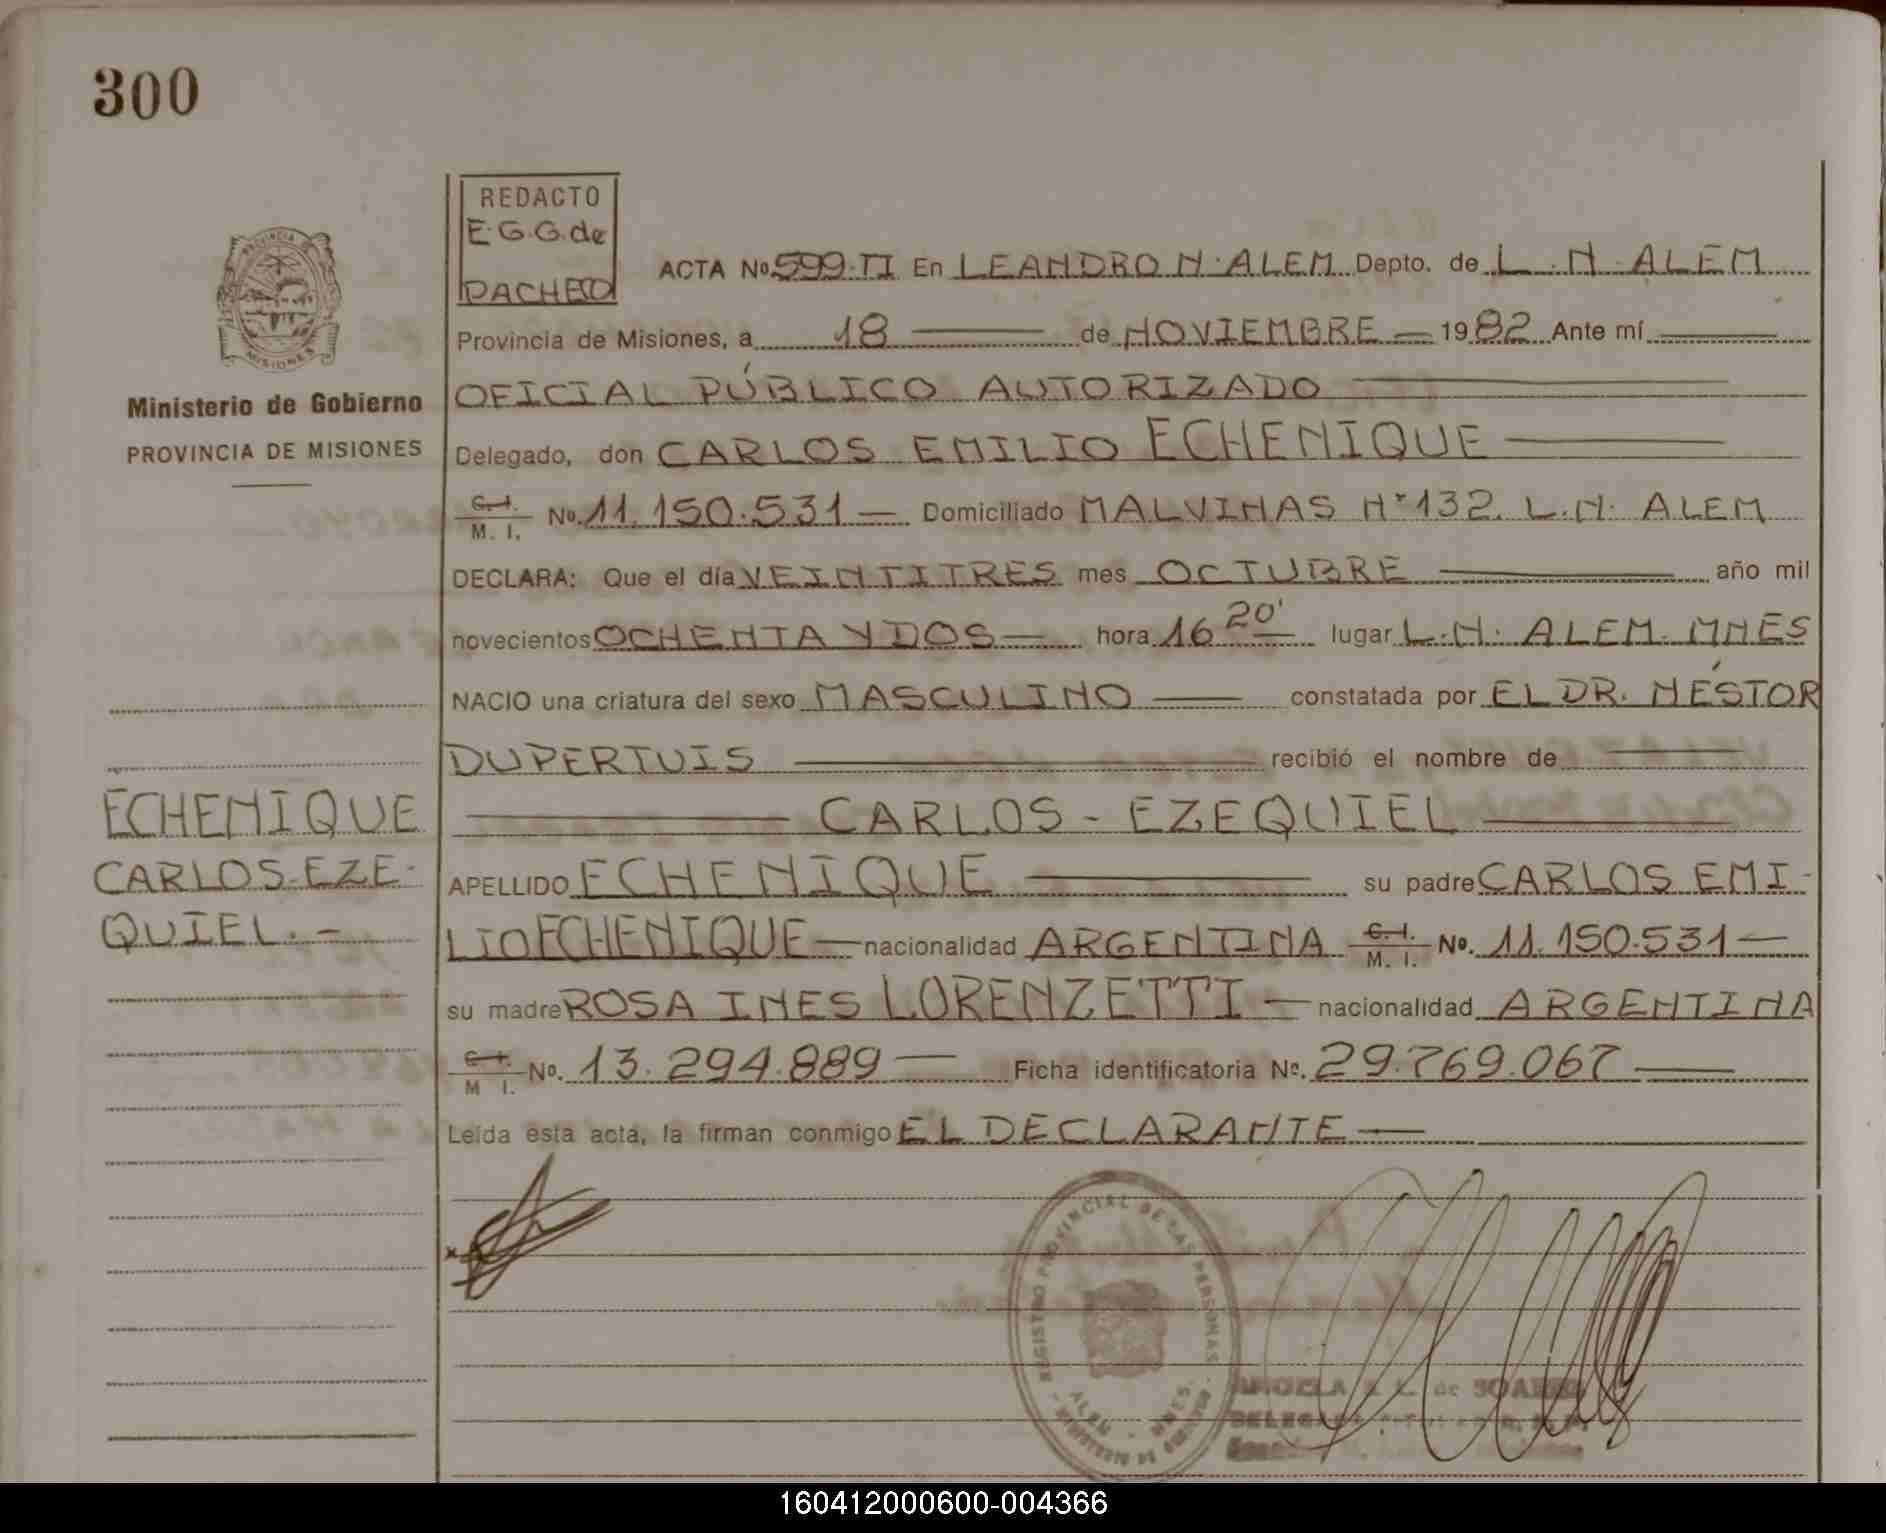 300
REDACTO
E.G.G. de
PACHECO
PROVINCIA DE
MISIONES
Ministerio de Gobierno
PROVINCIA DE MISIONES
ACTA No 599-TI En LEANDRO N. ALEM Depto. de L. N. ALEM
Provincia de Misiones, a 18 de NOVIEMBRE 1982 Ante mí
OFICIAL PÚBLICO AUTORIZADO
Delegado, don CARLOS EMILIO ECHENIQUE
C. I. M. I. No. 11.150.531 — Domiciliado MALVINAS Nº 132. L.N. ALEM
DECLARA: Que el día VEINTITRES mes OCTUBRE año mil
novecientos OCHENTA Y DOS — hora 16 20' lugar L.N. ALEM. MNES
NACIO una criatura del sexo MASCULINO constatada por EL DR. NÉSTOR
DUPERTUIS recibió el nombre de
CARLOS - EZEQUIEL
ECHENIQUE
CARLOS-EZE-
QUIEL.-
APELLIDO ECHENIQUE su padre CARLOS EMI-
LIO ECHENIQUE — nacionalidad ARGENTINA C. I. M. I. No. 11.150.531 —
su madre ROSA INES LORENZETTI — nacionalidad ARGENTINA
C. I. M. I. No. 13.294.889 — Ficha identificatoria No. 29.769.067
Leída esta acta, la firman conmigo EL DECLARANTE —
REGISTRO PROVINCIAL DE LAS PERSONAS
ALEM - MNES.
ANGELA de SOAREZ
160412000600-004366